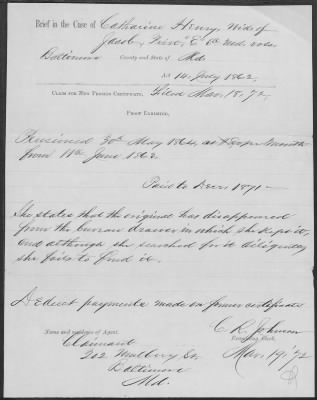 Brief in the Case of Catharine Henry, Wid of
Jacob, Priv. "E" 6th Md. vols
Baltimore County and State of Md
Act 14 July 1862.
CLAIM FOR NEW PENSION CERTIFICATE. Filed Mar. 18. '72.
PROOF EXHIBITED.
Pensioned 30th May 1864, at $8 per month
from 11th June 1863
Paid to Decr. 1871—
She states that the original has disappeared
from the bureau drawer in which she kept it,
and although she searched for it diligently
she fails to find it.
Deduct payments made on former certificate
Name and residence of Agent.
C R Johnson
Examining Clerk.
Claimant
Mar. 19, '72
202 Mulberry St.
Baltimore
Md.